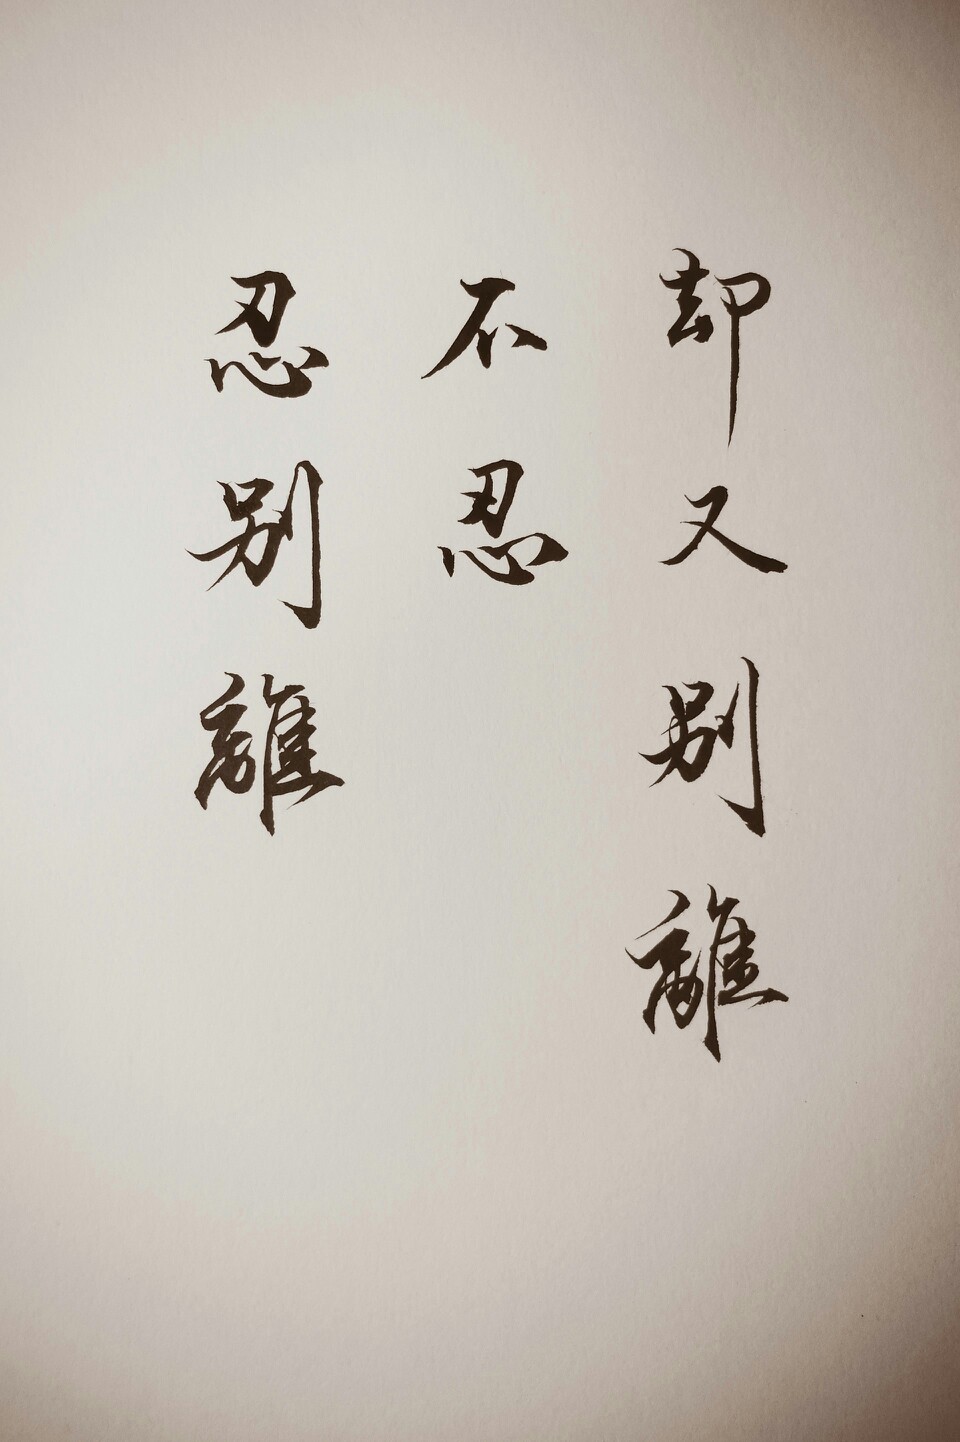 却又别離
不忍
忍别離